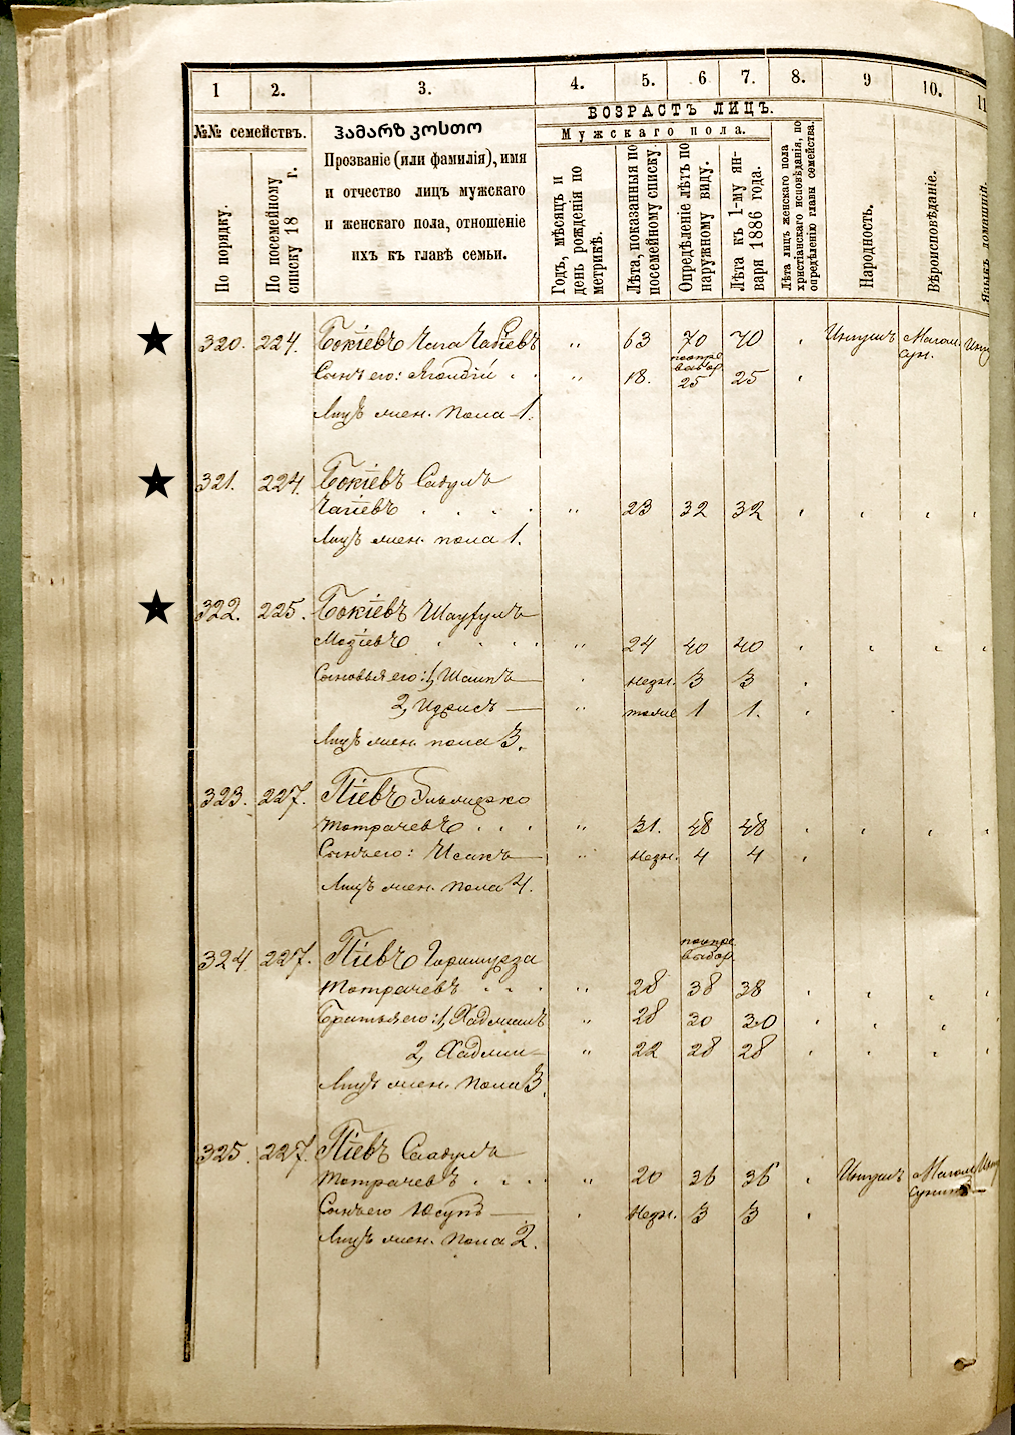 1 2. 3. 4. 5. 6 7. 8. 9 10. 11
№№ семействъ.
По порядку.
По посемейному списку 18 г.
ჰამარზ კოსთო
Прозваніе (или фамилія), имя
и отчество лицъ мужскаго
и женскаго пола, отношеніе
ихъ къ главѣ семьи.
ВОЗРАСТЪ ЛИЦЪ.
Мужскаго пола.
Годъ, мѣсяцъ и день рожденія по метрикѣ.
Лѣта, показанныя по посемейному списку.
Опредѣленіе лѣтъ по наружному виду.
Лѣта къ 1-му января 1886 года.
Лѣта лицъ женскаго пола христіанскаго исповѣданія, по опредѣленію главы семейства.
Народность.
Вѣроисповѣданіе.
Языкъ домашній.
320. 224. Бокіевъ Чага Чабіевъ " 63 70 70 Ингушъ Магом. сун. Инг
Сынъ его: " 18. 25 25
Лицъ жен. пола 1.
321. 224. Бокіевъ Садулъ
Чагіевъ " 23 32 32
Лицъ жен. пола 1.
322. 225. Бокіевъ
" 24 40 40
Сыновья его: 1, Шаипъ недн. 3 3
2, Идрисъ — " тоже 1 1.
Лицъ жен. пола 3.
323. 227. Піевъ Эльмурзко
Тотрачевъ " 31. 48 48
Сынъ его: Исакъ " недн. 4 4
Лицъ жен. пола 4.
324 227. Піевъ
Тотрачевъ " 28 38 38
Братья его: 1, " 28 30 30
2, " 22 28 28
Лицъ жен. пола 3.
325. 227. Піевъ Саадулъ
Тотрачевъ " 20 36 36 Ингушъ Магоме Инг
сунит
Сынъ его Юсупъ — недн. 3 3
Лицъ жен. пола 2.